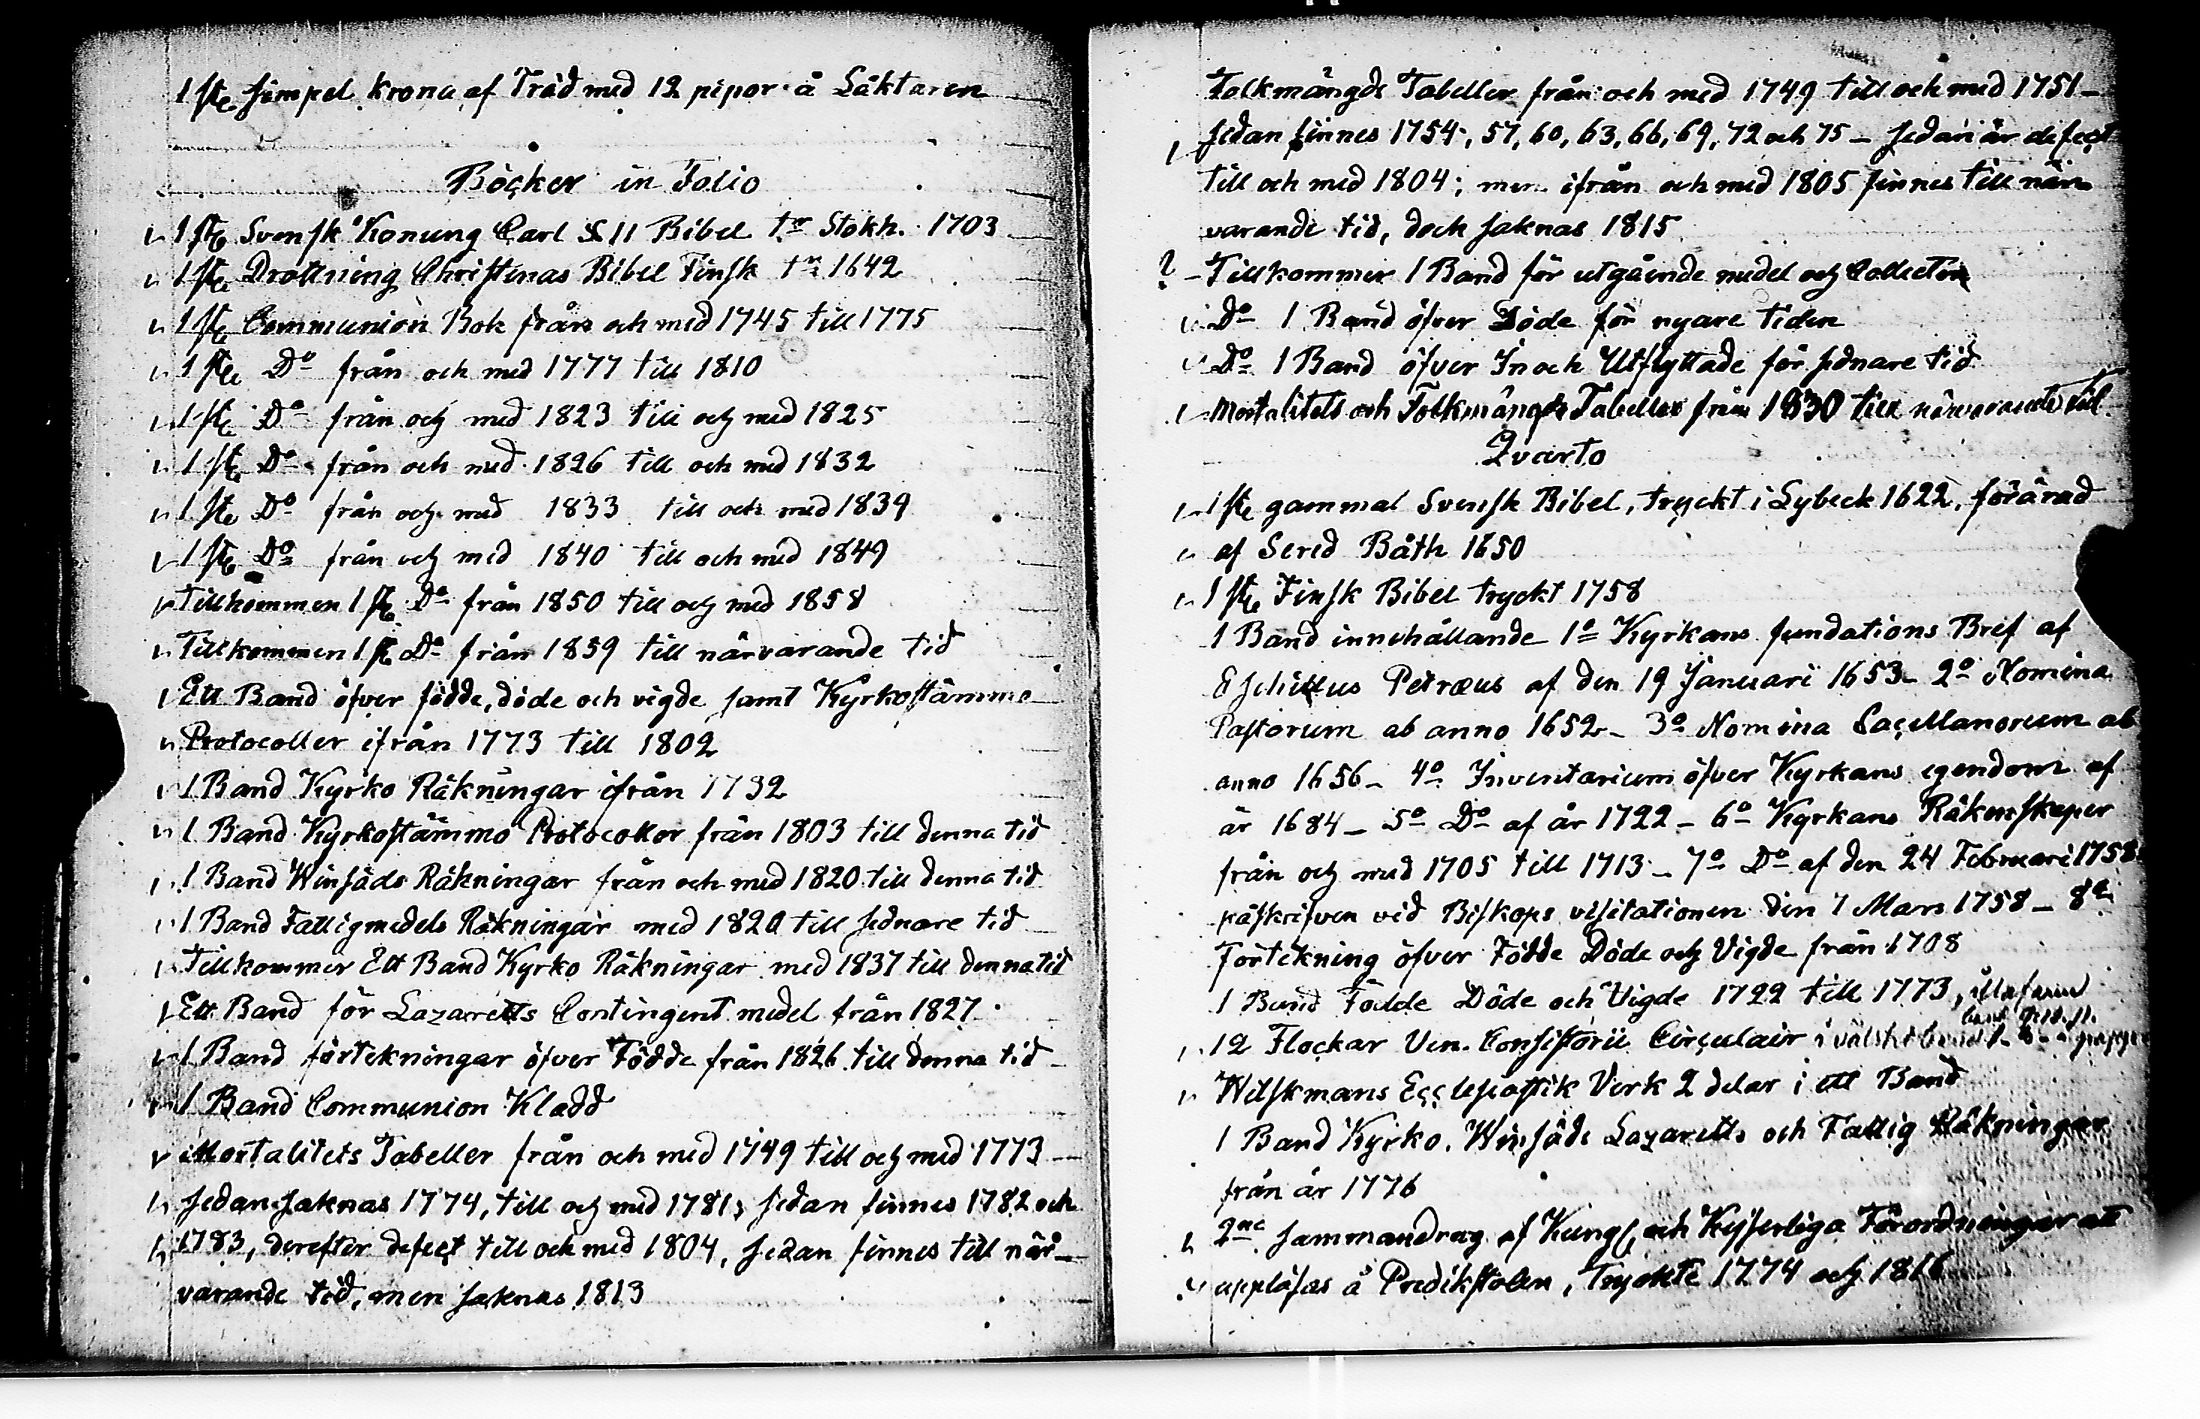 1 st simpel krona af Träd med 12 pipor å Läktaren
Böcker in Folio
1 st Svensk Konung Carl XII Bibel tr Stokh. 1703
1 st Drottning Christinas Bibel Finsk tr 1642
1 st Communion Bok från och med 1745 till 1775
1 st Do från och med 1777 till 1810
1 st Do från och med 1823 till och med 1825
1 st Do från och med 1826 till och med 1832
1 st Do från och med 1833 till och med 1839
1 st Do från och med 1840 till och med 1849
Tillkommen 1 st Do från 1850 till och med 1858
Tillkommen 1 st Do från 1859 till närvarande tid
Ett Band öfver födde, döde och vigde samt Kyrkostämmo
Protocoller ifrån 1773 till 1802
1 Band Kyrko Räkningar ifrån 1732
1 Band Kyrkostämmo Protocoller från 1803 till denna tid
1 Band Winsäds Räkningar från och med 1820 till denna tid
1 Band Fattigmedels Räkningar med 1820 till sednare tid
Tillkommer Ett Band Kyrko Räkningar med 1837 till denna tid
Ett Band för Lazaretts Contingent medel från 1827
1 Band förtekningar öfver Födde från 1826 till denna tid
1 Band Communion Kladd
Mortalitets Tabeller från och med 1749 till och med 1773
sedan saknas 1774, till och med 1781, sedan finnes 1782 och
1783, derefter defect till och med 1804, sedan finnes till när-
varande tid, men saknas 1813
Folkmängds Tabeller från och med 1749 till och med 1751 -
sedan finnes 1754, 57, 60, 63, 66, 69, 72 och 75 - sedan är defect
till och med 1804; men ifrån och med 1805 finnes till när
varande tid, dock saknas 1815
? - Tillkommer 1 Band för utgående medel och Collecter
Do 1 Band öfver Döde för nyare tiden
Do 1 Band öfver In och Utflyttade för sednare tid
Mortalitets och Folkmängds Tabeller från 1830 till närvarande tid
Qvarto
1 st gammal Svensk Bibel, tryckt i Lybeck 1622, förärad
af Sered Bååth 1650
1 st Finsk Bibel tryckt 1758
1 Band innehållande 1o Kyrkans fundations Bref af
Eschillus Petræus af den 19 Januari 1653 - 2o Nomina
Pastorum ab anno 1652 - 3o Nomina Sacellanorum ab
anno 1656 - 4o Inventarium öfver Kyrkans egendom af
år 1684 - 5o Do af år 1722 - 6o Kyrkans Räkenskaper
från och med 1705 till 1713 - 7o Do af den 24 Februari 1758
påskrifven vid Biskops visitationen den 7 Mars 1758 - 8o
Förtekning öfver Födde Döde och Vigde från 1708
1 Band Födde Döde och Vigde 1722 till 1773,
12 Flockar Ven. Consistorii Circulair i
Wilskmans Ecclesiastik Verk 2 delar i ett Band
1 Band Kyrko, Winsäds Lazaretts och Fattig Räkningar
från år 1776
2ne sammandrag af Kungl. och Kejserliga Förordningar att
uppläsas å Predikstolen, Tryckte 1774 och 1816